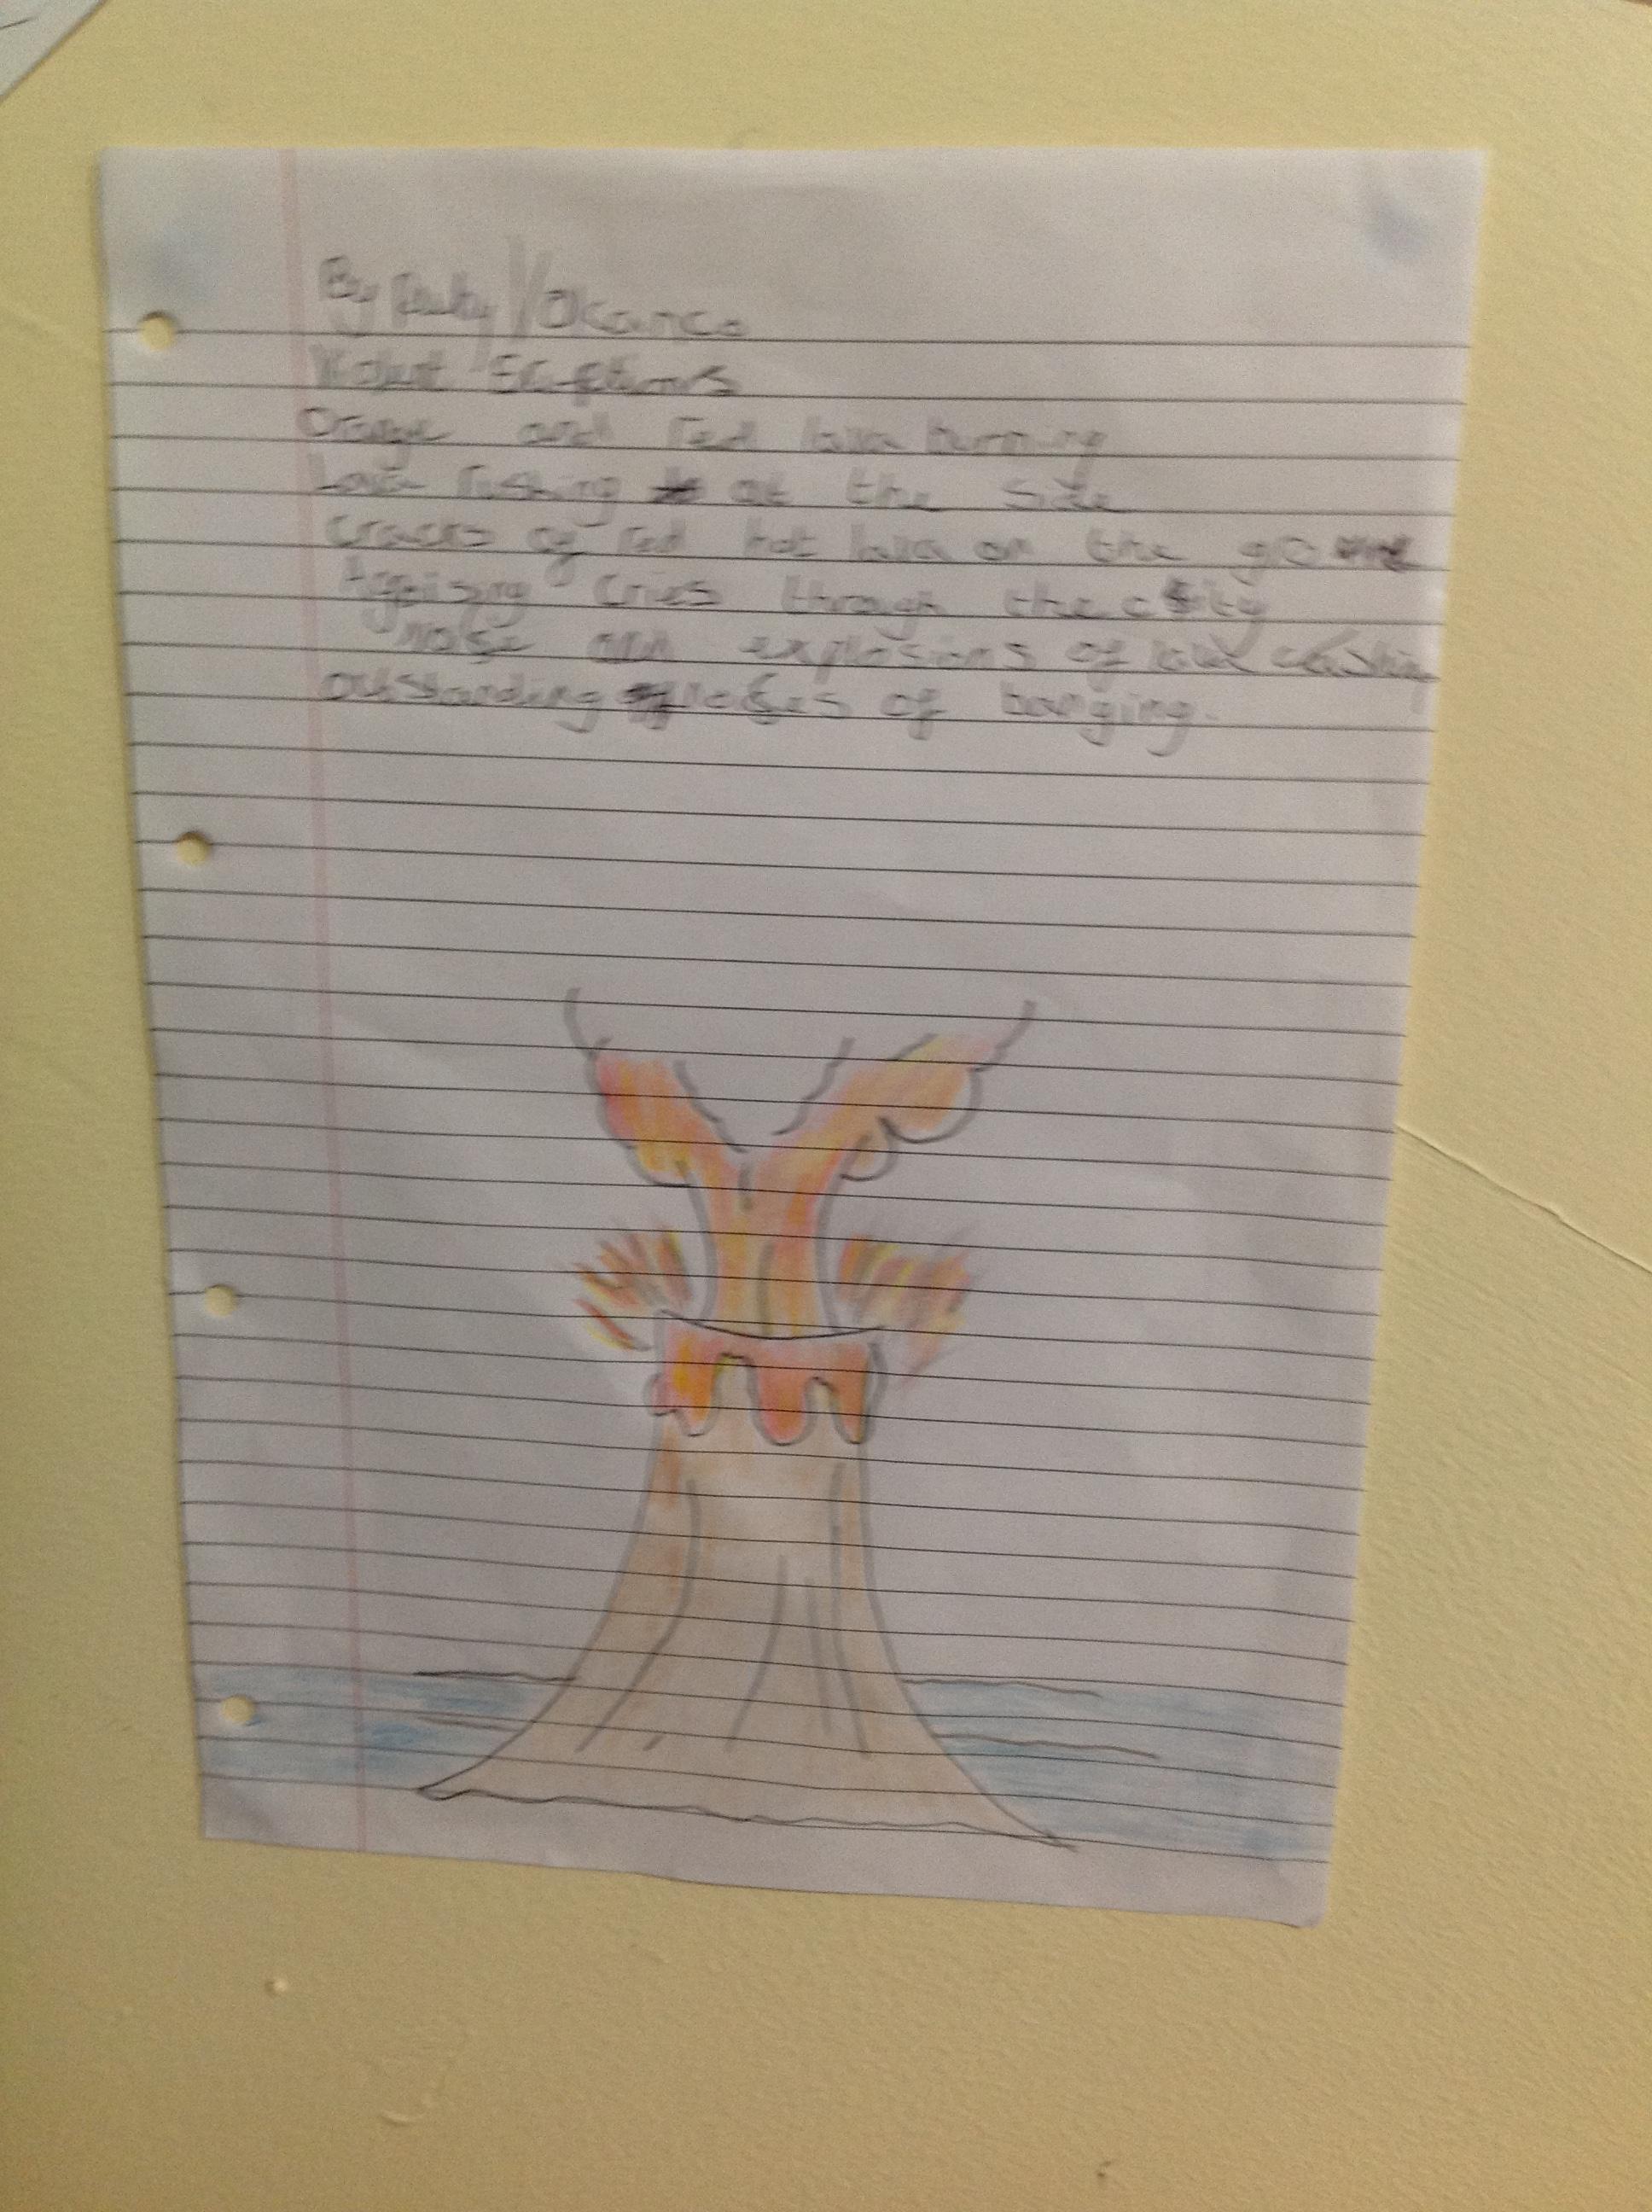 By Ruby Volcanco
Violent Eruptions
Orange and red lava burning
Lava rushing at the side
Cracks of red hot lava on the
Agonising cries through the city
noise and explosions of lava
outstanding noises of banging.